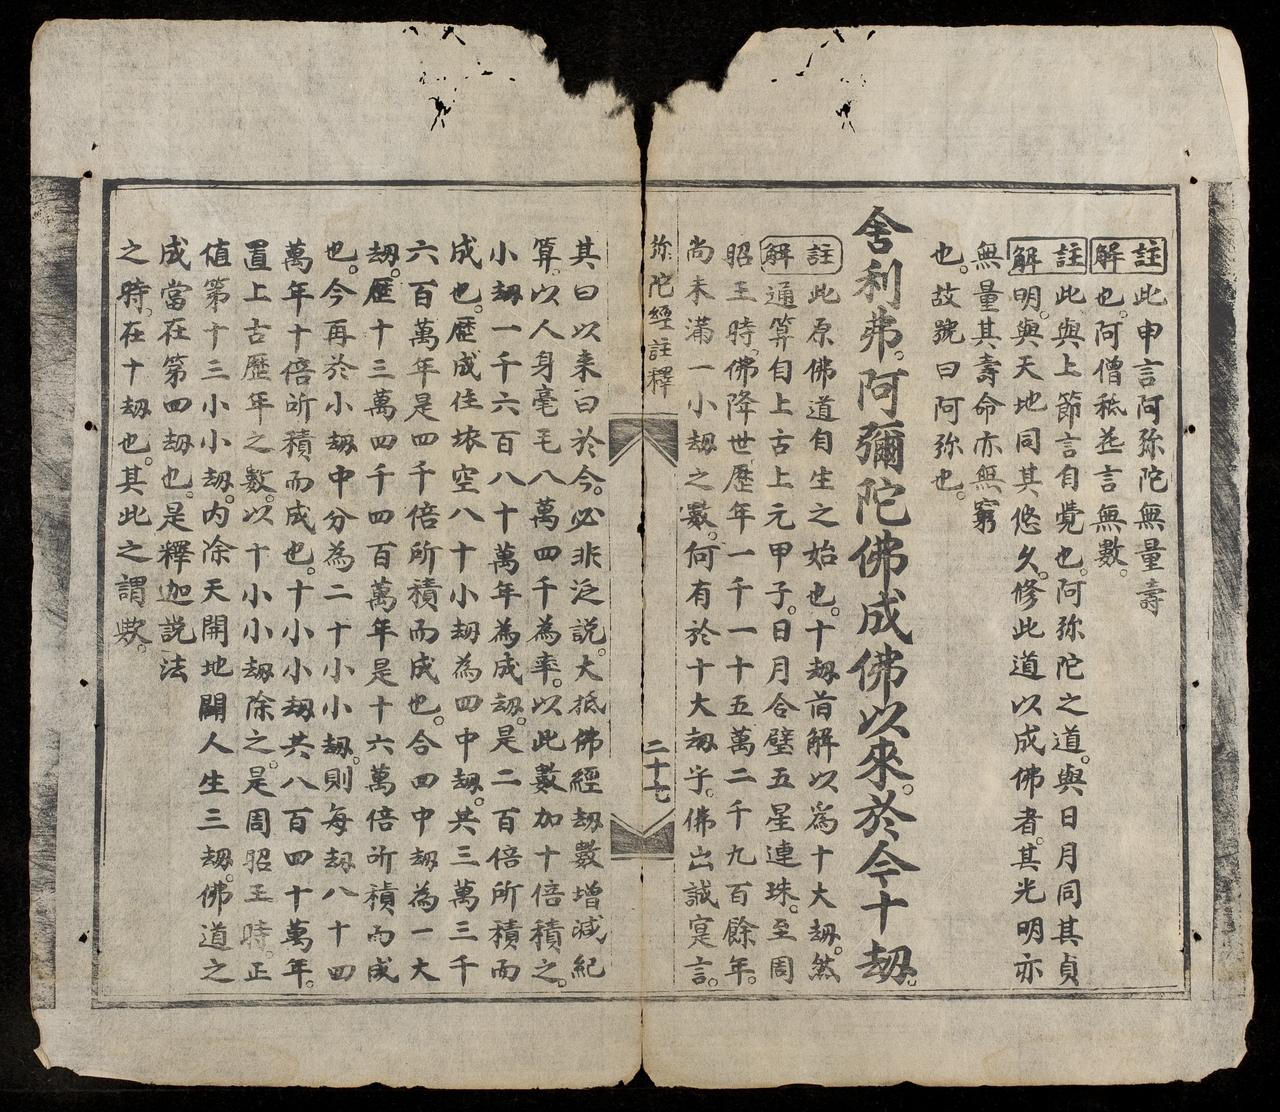 註此申言阿弥陀無量壽
解也。阿僧秪並言無數。
註此與上節言自覺也。阿弥陀之道。與日月同其貞
解明。與天地同其悠久。修此道以成佛者。其光明亦
無量其壽命亦無窮
也。故號曰阿弥也。
舍利弗。阿彌陀佛成佛以來。於今十劫。
註此原佛道自生之始也。十劫首解以爲十大劫。然
解通算自上古上元甲子。日月合璧五星連珠。至周
昭王時。佛降世歷年一千一十五萬二千九百餘年。
尚未滿一小劫之數。何有於十大劫乎。佛出誠寔言。
弥陀經註釋
二十七
其曰以来曰於今。必非泛說。大抵佛經劫數增減紀
算。以人身毫毛八萬四千為率。以此數加十倍積之。
小劫一千六百八十萬年為成劫。是二百倍所積而
成也。歷成住坏空八十小劫為四中劫。共三萬三千
六百萬年是四千倍所積而成也。合四中劫為一大
劫。歷十三萬四千四百萬年是十六萬倍所積而成
也。今再於小劫中分為二十小小劫。則每劫八十四
萬年十倍所積而成也。十小小劫共八百四十萬年。
置上古歷年之數。以十小小劫除之。是周昭王時。正
值第十三小小劫。内除天開地闢人生三劫。佛道之
成當在第四劫也。是釋迦説法
之時。在十劫也。其此之謂歟。